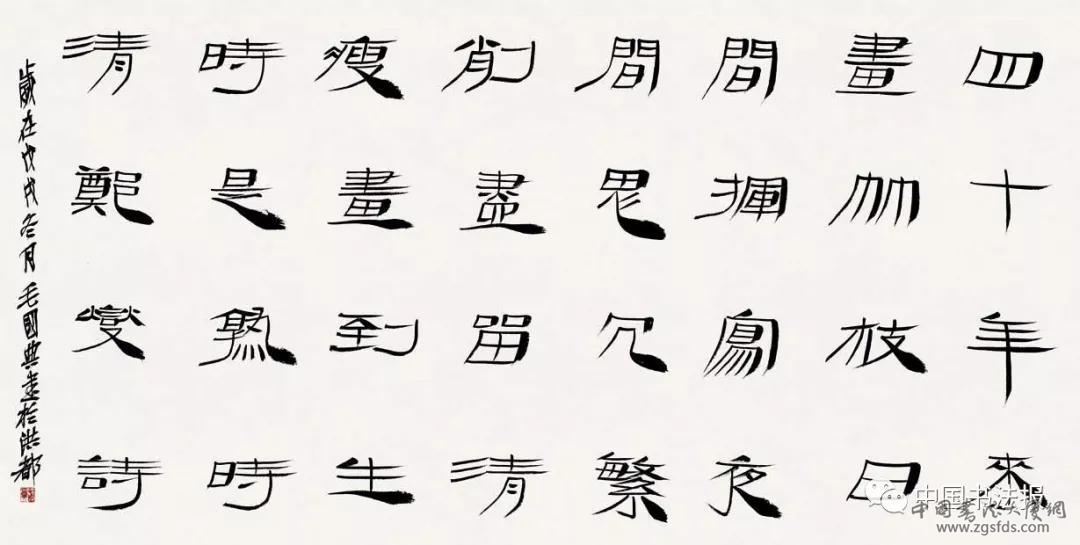 四十年來
畫竹枝日
間揮寫夜
間思冗繁
削盡留清
瘦畫到生
時是熟時
清鄭燮詩
歲在戊戌冬月毛國典書於洪都
中国书法报
中國書法大厦網
www.zgsfds.com